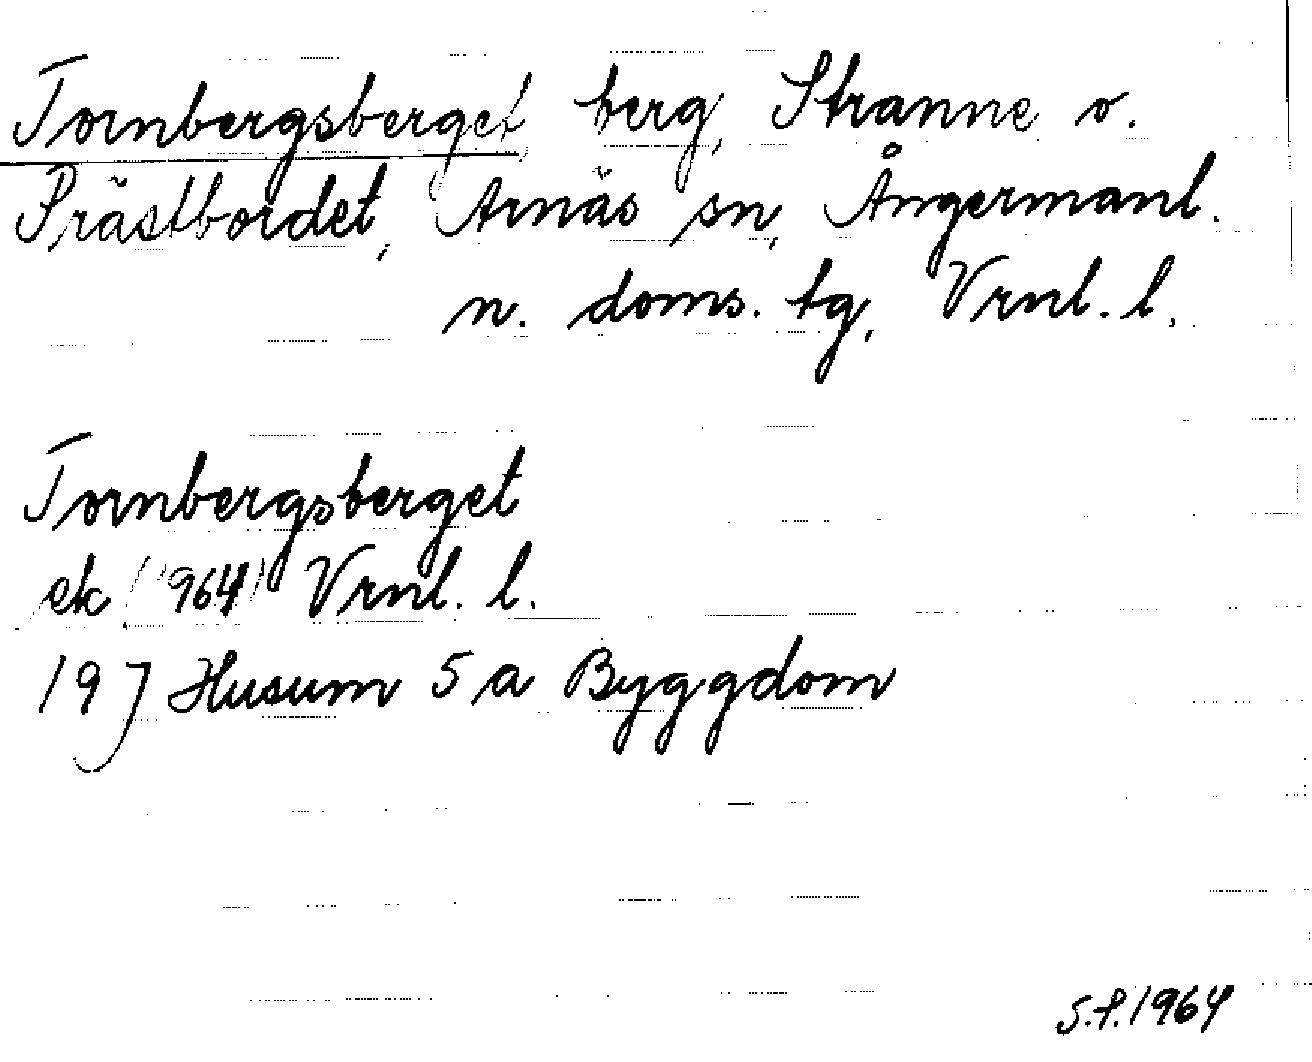 Tornbergsberget, berg, Stranne o.
Prästbordet, Arnäs sn, Ångermanl.
n. doms. tg, Vrnl. l.
Tornbergsberget
ek (1964) Vrnl. l.
19J Husum 5 a Byggdom
S.P. 1964